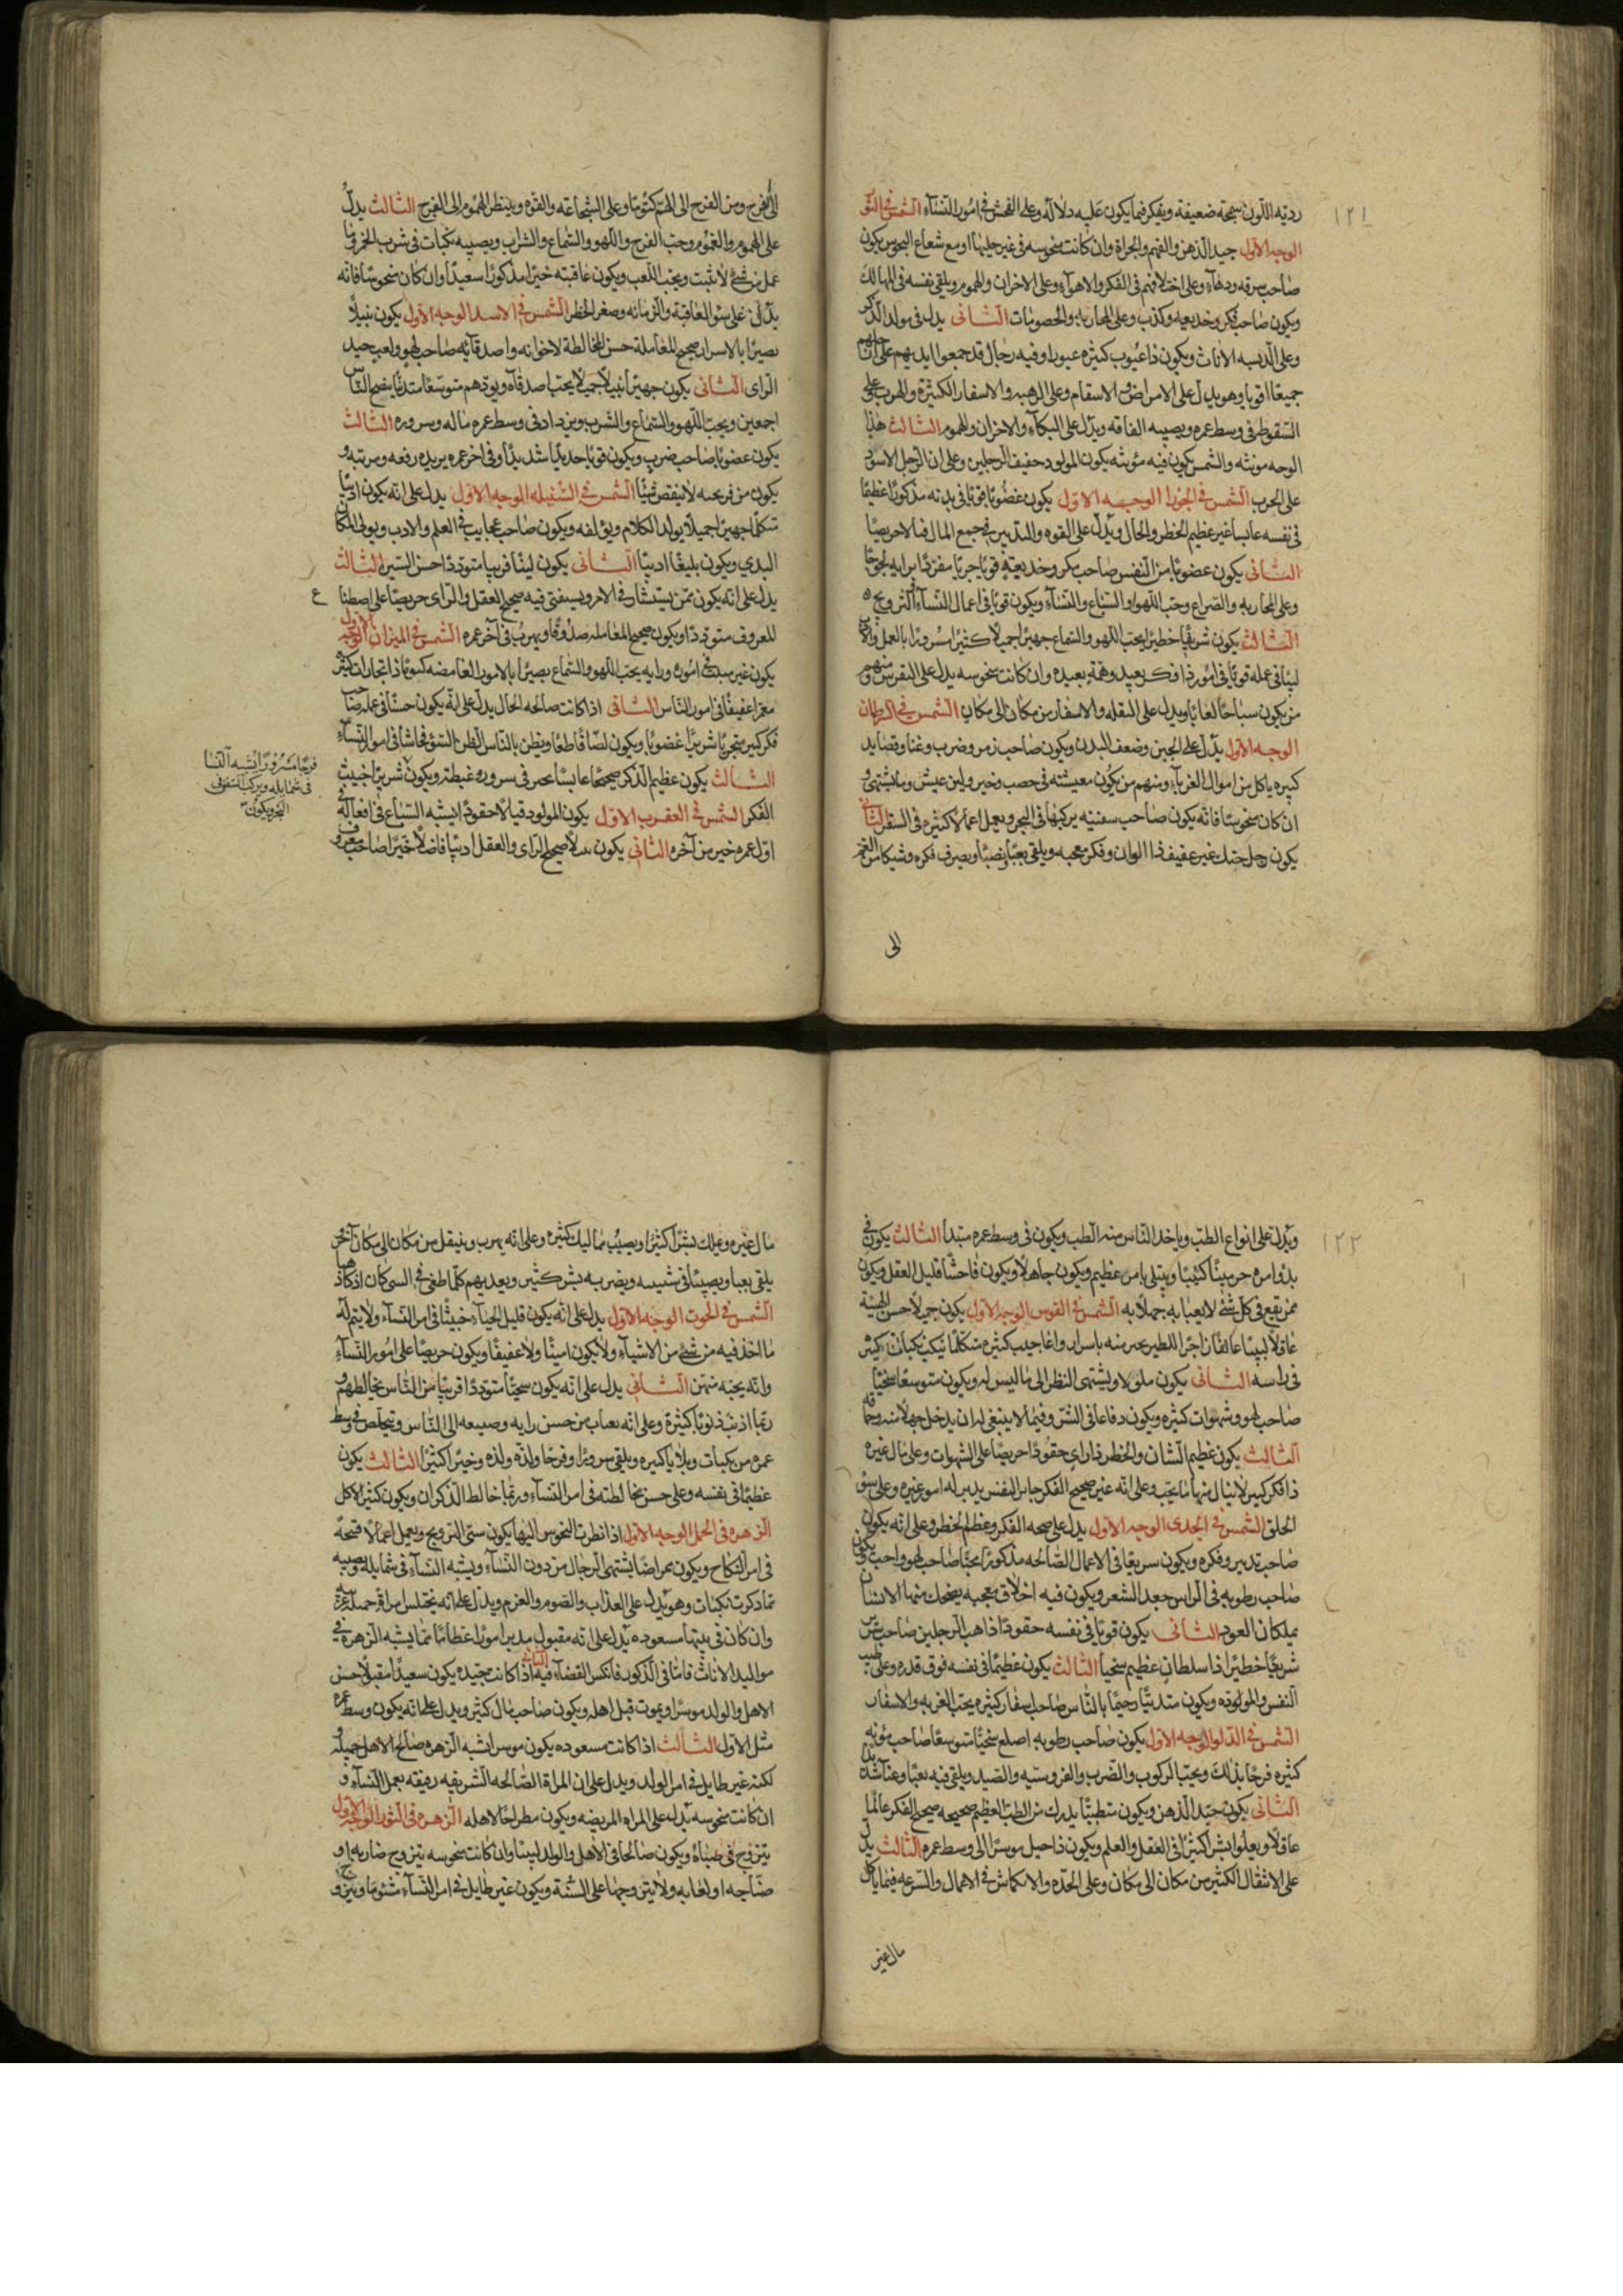 ١٢١
رديّة اللّون سمجة ضعيفة ويفكر فيما يكون عليه دلالة وعلى الفحش فى امور النّسآء الشمس فى الثور
الوجه الاول جيد الذهن والفهم والجراة وان كانت منحوسه فى غير حليتها او مع شعاع النحوس يكون
صاحب سرقه ودهآء وعلى اختلافهم فى الفكر والاهوآء وعلى الاحزان والهموم ويلقى نفسه فى المهالك
ويكون صاحب فكر وخديعه وكذب وعلى المحاربه والخصومات الثانى يدل فى مولد الذكر
وعلى الدبسه الاناث ويكون ذا عيوب كثيره عبورا وفيه رجال قد جمعوا ايديهم على ان
جميعا اقويا وهو يدل على الامراض والاسقام وعلى الرهبه والاسفار الكثيرة والهرب على
السّقوط فى وسط عمره ويصيبه الفاقه ويدل على البكآء والاحزان والهموم الثالث هذا
الوجه مونثه والشمس يكون فيه مونثه يكون المولود خفيف الرجلين وعلى ان الرجل الاسود
على الحرب الشمس فى الجوزا الوجه الاول يكون غضوبا قويا فى بدنه مذكورا عظيما
فى نفسه عابسا غير عظيم الخطر والحال ويدل على القوه والتدبير فى جمع المال فيما لا حريصا
الثانى يكون غضوبا من النفس صاحب مكر وخديعة قويا جريا مفردا برايه لجوجا
وعلى المحاربه والصراع وحب اللهو والسماع والنسآء ويكون قويا فى اعمال النسآء اكثر ويج
الثالث يكون شريفا خطيرا يحب اللهو والسماع جهيرا جميلا كثيرا مسرورا بالعمل والا
لينا فى عمله قويا فى امور ذا فكر بعيد وهمّة بعيده وان كانت منحوسه يدل على النقرس ومنهم
من يكون سباحا لغابا ويدل على النقله والاسفار من مكان الى مكان الشمس فى السرطان
الوجه الاول يدل على الجبن وضعف البدن ويكون صاحب زمر وضرب وغنا وقصايد
كبيره ياكل من اموال الغربآء ومنهم من يكون معيشته فى خصب وخير ولين عيش وما يشتهى و
ان كان منحوسا فانه يكون صاحب سفينه يركبها فى البحر ويعمل اعمالا كثيره فى السفر الثانى
يكون رجل حنك غير عفيف ذا الوان وفكر معجبه ويلقى تعبا ونصبا ويصرف فكره وشيكا من الغم
الى
الى الفرح ومن الفرح الى الهم كتوما وعلى الشجاعه والقوه وينظر الهموم الى الفرح الثالث يدل
على الهموم والغموم وحب الفرح واللهو والسماع والشراب ويصيبه نكبات فى شرب الخمر وما
عمل من شئ لا يثبت ويحب اللعب ويكون عاقبته خيرا مذكورا سعيدا وان كان منحوسا فانه
يدل على سؤ العاقبة والزمانه وصغر الخطر الشمس فى الاسد الوجه الاول يكون نبيلا
بصيرا بالاسرار صحيح المعاملة حسن المخالطة لاخوانه واصدقآئه صاحب لهو ولعب جيد
الراى الثانى يكون جهيرا نبيلا جميلا يحب اصدقاه ويودهم متوسعا متدينا ينصح الناس
اجمعين ويحب اللهو والسماع والشرب ويزداد فى وسط عمره ماله وسروره الثالث
يكون غضوبا صاحب ضرب ويكون قويا حديدا شديدا وفى اخر عمره يريده رفعه ومرتبه و
يكون من فرجه لا ينقص شيئا الشمس فى السنبله الوجه الاول يدل على انه يكون اديبا
متكلما جهيرا جميلا يولد الكلام ويؤلفه ويكون صاحب عجايب فى العلم والادب ويولى المكان
البدى ويكون بليغا اديبا الثانى يكون لينا قريبا متوددا حسن السيرة الثالث
يدل على انه يكون ممن يستشار فى الامر ويستفتى فيه صحيح العقل والراى حريصا على اصطنا
ع
للمعروف متوددا ويكون صحيح المعامله صدوقا ويهرب فى آخر عمره الشمس فى الميزان الوجه الاول
يكون غير مبتدى فى اموره ورايه يحب اللهو والسماع بصيرا بالامور الغامضه كسوبا ذا تجارات كثيره
معمرا عفيفا فى امور الناس الثانى اذا كانت صالحه الحال يدل على انه يكون حسنا فى عمله صاحب
فكر كبير متحريا شريرا غضوبا ويكون لصّا قاطعا ويظن بالناس الظن السؤ فحاشا فى امور النساء
الثالث يكون عظيم الذكر صحيحا عابسا عمر فى سروره غبطه ويكون شريرا خبيث
الفكر الشمس فى العقرب الاول يكون المولود قبالا حقودا يشبه السباع فى افعاله فى
اول عمره خير من آخره الثانى يكون صحيح الراى والعقل اديبا فاضلا خيرا صاحب معروف
فرحا مسرورا يشبه النسا
فى شمايله ويركب السفن فى
البحر ويكون
١٢٢
ويدل على انواع الطبّ وياخذ الناس منه الطب ويكون فى وسط عمره مبتدأ الثالث يكون فى
بدؤ امره حزينا كئيبا ويبتلى بامر عظيم ويكون جاهلا ويكون فاحشا قليل العقل ويكون
ممن يقع فى كل شئ لا يعبا به جهلا به الشمس فى القوس الوجه الاول يكون جميلا حسن الهيئة
عاقلا لبيبا عايفا زاجرا للطير يخبر منه باسرار واعاجيب كثيره متكلما ينكب نكبات كثير
فى راسه الثانى يكون ملولا ويشتهى النظر الى ما ليس له ويكون متوسعا سخيا
صاحب لهو وشهوات كثيره ويكون دفاعا فى الشّر وفيما لا ينبغى له ان يدخل جهلا منه وحماقه
الثالث يكون عظيم الشان والخطر ذا راى حقودا حريصا على الشهوات وعلى مال غيره
ذا فكر كبير لا ينال منها ما يحب وعلى انه غير صحيح الفكر جبار النفس يدبر له امور غيره وعلى سؤ
الخلق الشمس فى الجدى الوجه الاول يدل على صحه الفكر وعظم الخطر وعلى انه يكون
صاحب تدبير وفكره ويكون سريعا فى الاعمال الصالحه مذكورا محبا صاحب لهو واحب ويكون
صاحب رطوبه فى الراس جعد الشعر ويكون فيه اخلاق معجبه يضحك منها الانسان
بملكان العود الثانى يكون قويا فى نفسه حقودا ذاهب الرجلين صاحب ترس
شريفا خطيرا ذا سلطان عظيم سخيا الثالث يكون عظيما فى نفسه فوق قدره وعلى طيب
النفس والمولوده ويكون متدينا رحيما بالناس صاحب اسفار كثيره يحب الغربه والاسفار
الشمس فى الدلو الوجه الاول يكون صاحب رطوبه اصلع سخيا متوسعا صاحب مؤنه
كثيره فرحا بذلك ويحب الركوب والضرب والفروسيه والصيد ويلقى فيه تعبا وعنآ شديد
الثانى يكون جيد الذهن ويكون متطببا يدرك من الطب العظيم صحيحه صحيح الفكر عالما
عاقلا ويعلوا بشرا كثيرا فى العقل والعلم ويكون ذا حيل موسرا الى وسط عمره الثالث يدل
على الانتقال الكثير من مكان الى مكان وعلى الحده والانكماش فى الاعمال والسرعه فيما ياكل
مال غير
مال غيره ويملك بشرا كثيرا ويصيب مماليك كثيره وعلى انه يهرب وينتقل من مكان الى مكان آخر
يلقى تعبا ونصبا فى شبيبه ويضر به بشر كثير ويعديهم كلما طغى فى السن كان اذكا ذهبا
الشمس فى الحوت الوجه الاول يدل على انه يكون قليل الحياء خبيثا فى امر النسآء ولا يتم له
ما اخذ فيه من شئ من الاشيآء ولا يكون امينا ولا عفيفا ويكون حريصا على امور النسآء
وانه يحبه منهن الثانى يدل على انه يكون سخيا متوددا قريبا من الناس يخالطهم و
ربما اذنب ذنوبا كثيرة وعلى انه يعاب من حسن رايه وصنيعه الى الناس ويتخلص فى وسط
عمره من نكبات وبلايا كثيره ويلقى سرورا وفرحا ولذه ولذه وخيرا كثيرا الثالث يكون
عظيما فى نفسه وعلى حسن مخالطته فى امر النسآء وربما خالط الذكران ويكون كثير الاكل
الزهره فى الحمل الوجه الاول اذا نظرت النحوس اليها يكون سئ التزويج ويعمل اعمالا قبيحة
فى امر النكاح ويكون ممراضا يشتهى الرجال من دون النسآء ويشبه النسآء فى شمايله ويصيبه
مما ذكرت نكبات وهو يدل على العذاب والصوم والعزم ويدل على انه يختلس امراة جميله
وان كان فى بيتها مسعوده يدل على انه مقبول يدبر امورا عظاما مما يشبه الزهره فى
مواليد الاناث فاما فى الذكور فانكس القضآء فيه الثانى اذا كانت مجتيده يكون سعيدا مقبولا حسن
الاهل والولد موسرا ويموت قبل اهله ويكون صاحب مال كثير ويدل على انه يكون وسط عمره
مثل الاول الثالث اذا كانت مسعوده يكون موسرا شبه الزهره صالح الاهل جميله
لكنه غير طايل فى امر الولد ويدل على ان المراة الصالحه الشريفه رفيقه بعمل النسآء و
ان كانت منحوسه يدل على المراه المريضه ويكون مطراحا لاهله الزهره فى الثور الوجه الاول
يتزوج فى صباه ويكون صالحا فى الاهل والولد لبيبا وان كانت منحوسه يتزوج ضاربه او
صنّاجه او لعابه ولا يتزوجها على السّنة ويكون غير طايل فى امر النسآء مشئوما ويتزوج